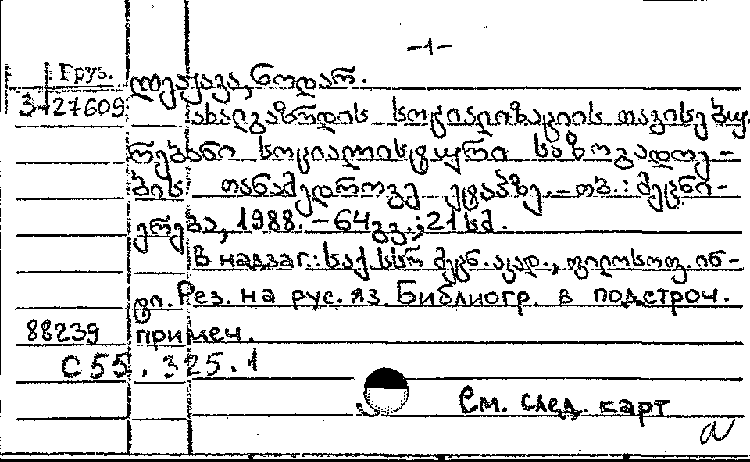 -1-
Груз.
ლეჟავა, ნოდარ.
3-27609
ახალგაზრდის სოციალიზაციის თავისებუ-
რებანი სოციალისტური საზოგადოე-
ბის თანამედროვე ეტაპზე.-თბ.: მეცნი-
ერება, 1988.-64გვ.; 21სმ.
В надзаг.: საქ. სსრ მეცნ. აკად., ფილოსოფ. ინ-
ტი. Рез. на рус. яз. Библиогр. в подстроч.
88239 примеч.
С55.325.1
См. след. карт